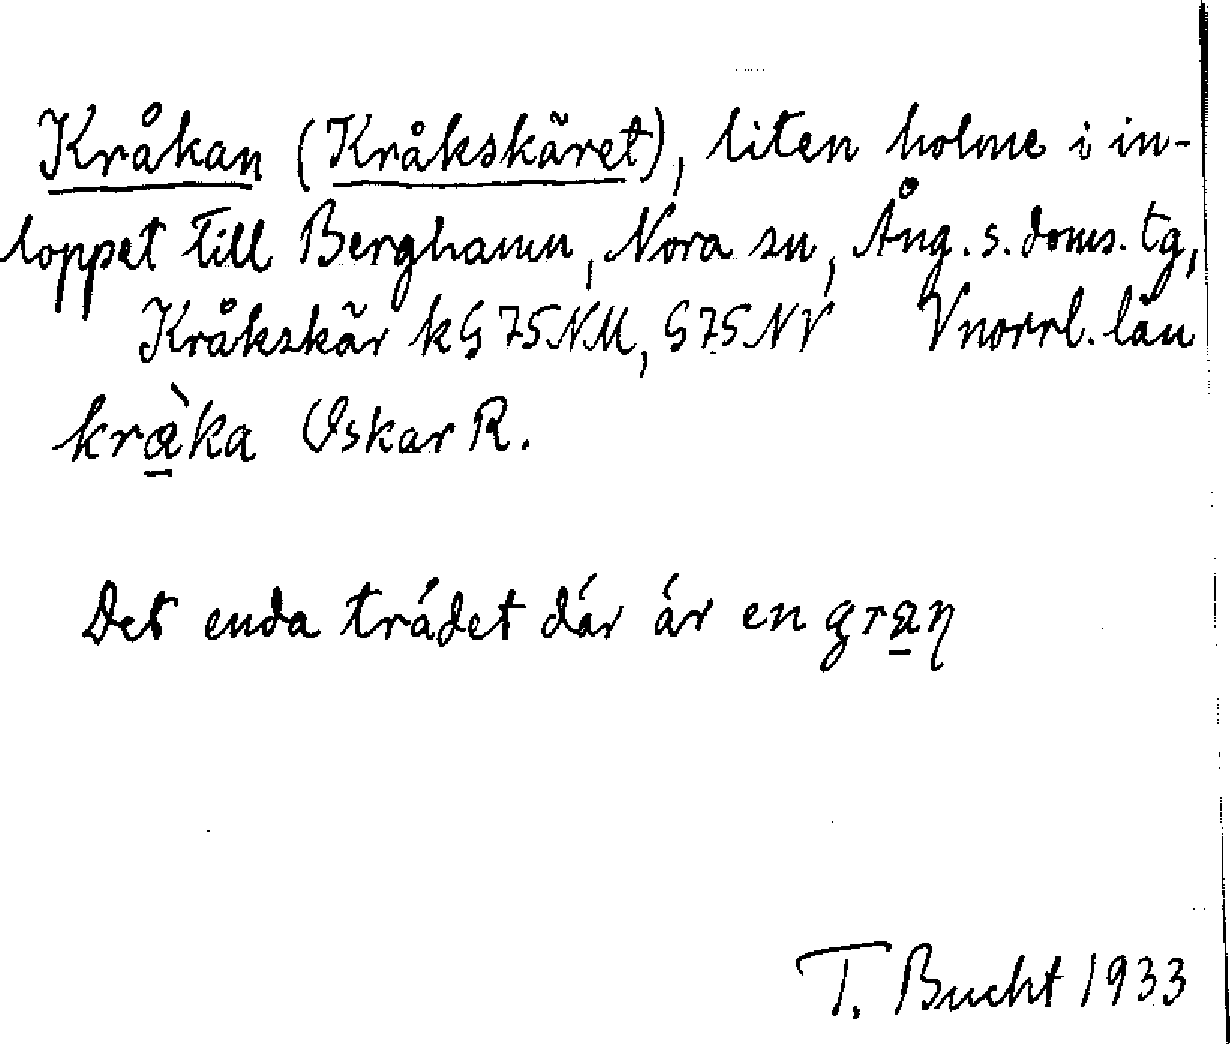 Kråkan (Kråkskäret), liten holme i in-
loppet till Berghamn, Nora sn, Ång. s. doms. tg,
Kråkskär kG75NM, G75NV Vnorrl. län
krà̱ka Oskar R.
Det enda trädet där är en gra̱η
T. Bucht 1933